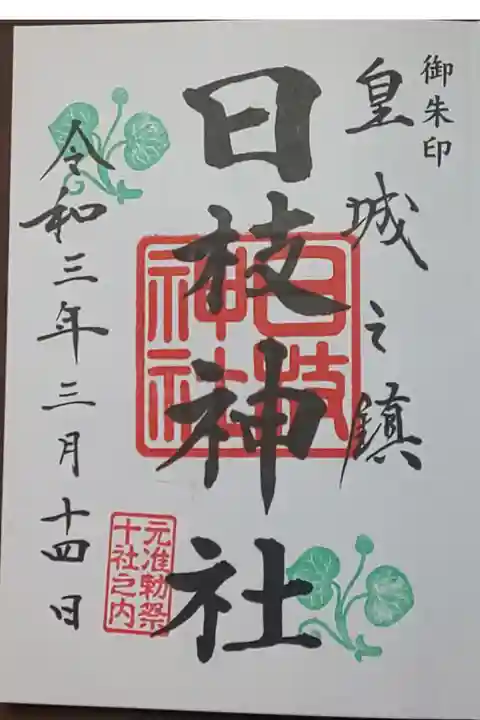 御朱印
皇城之鎮
日枝神社
日枝
神社
元准勅祭
十社之内
令和三年三月十四日